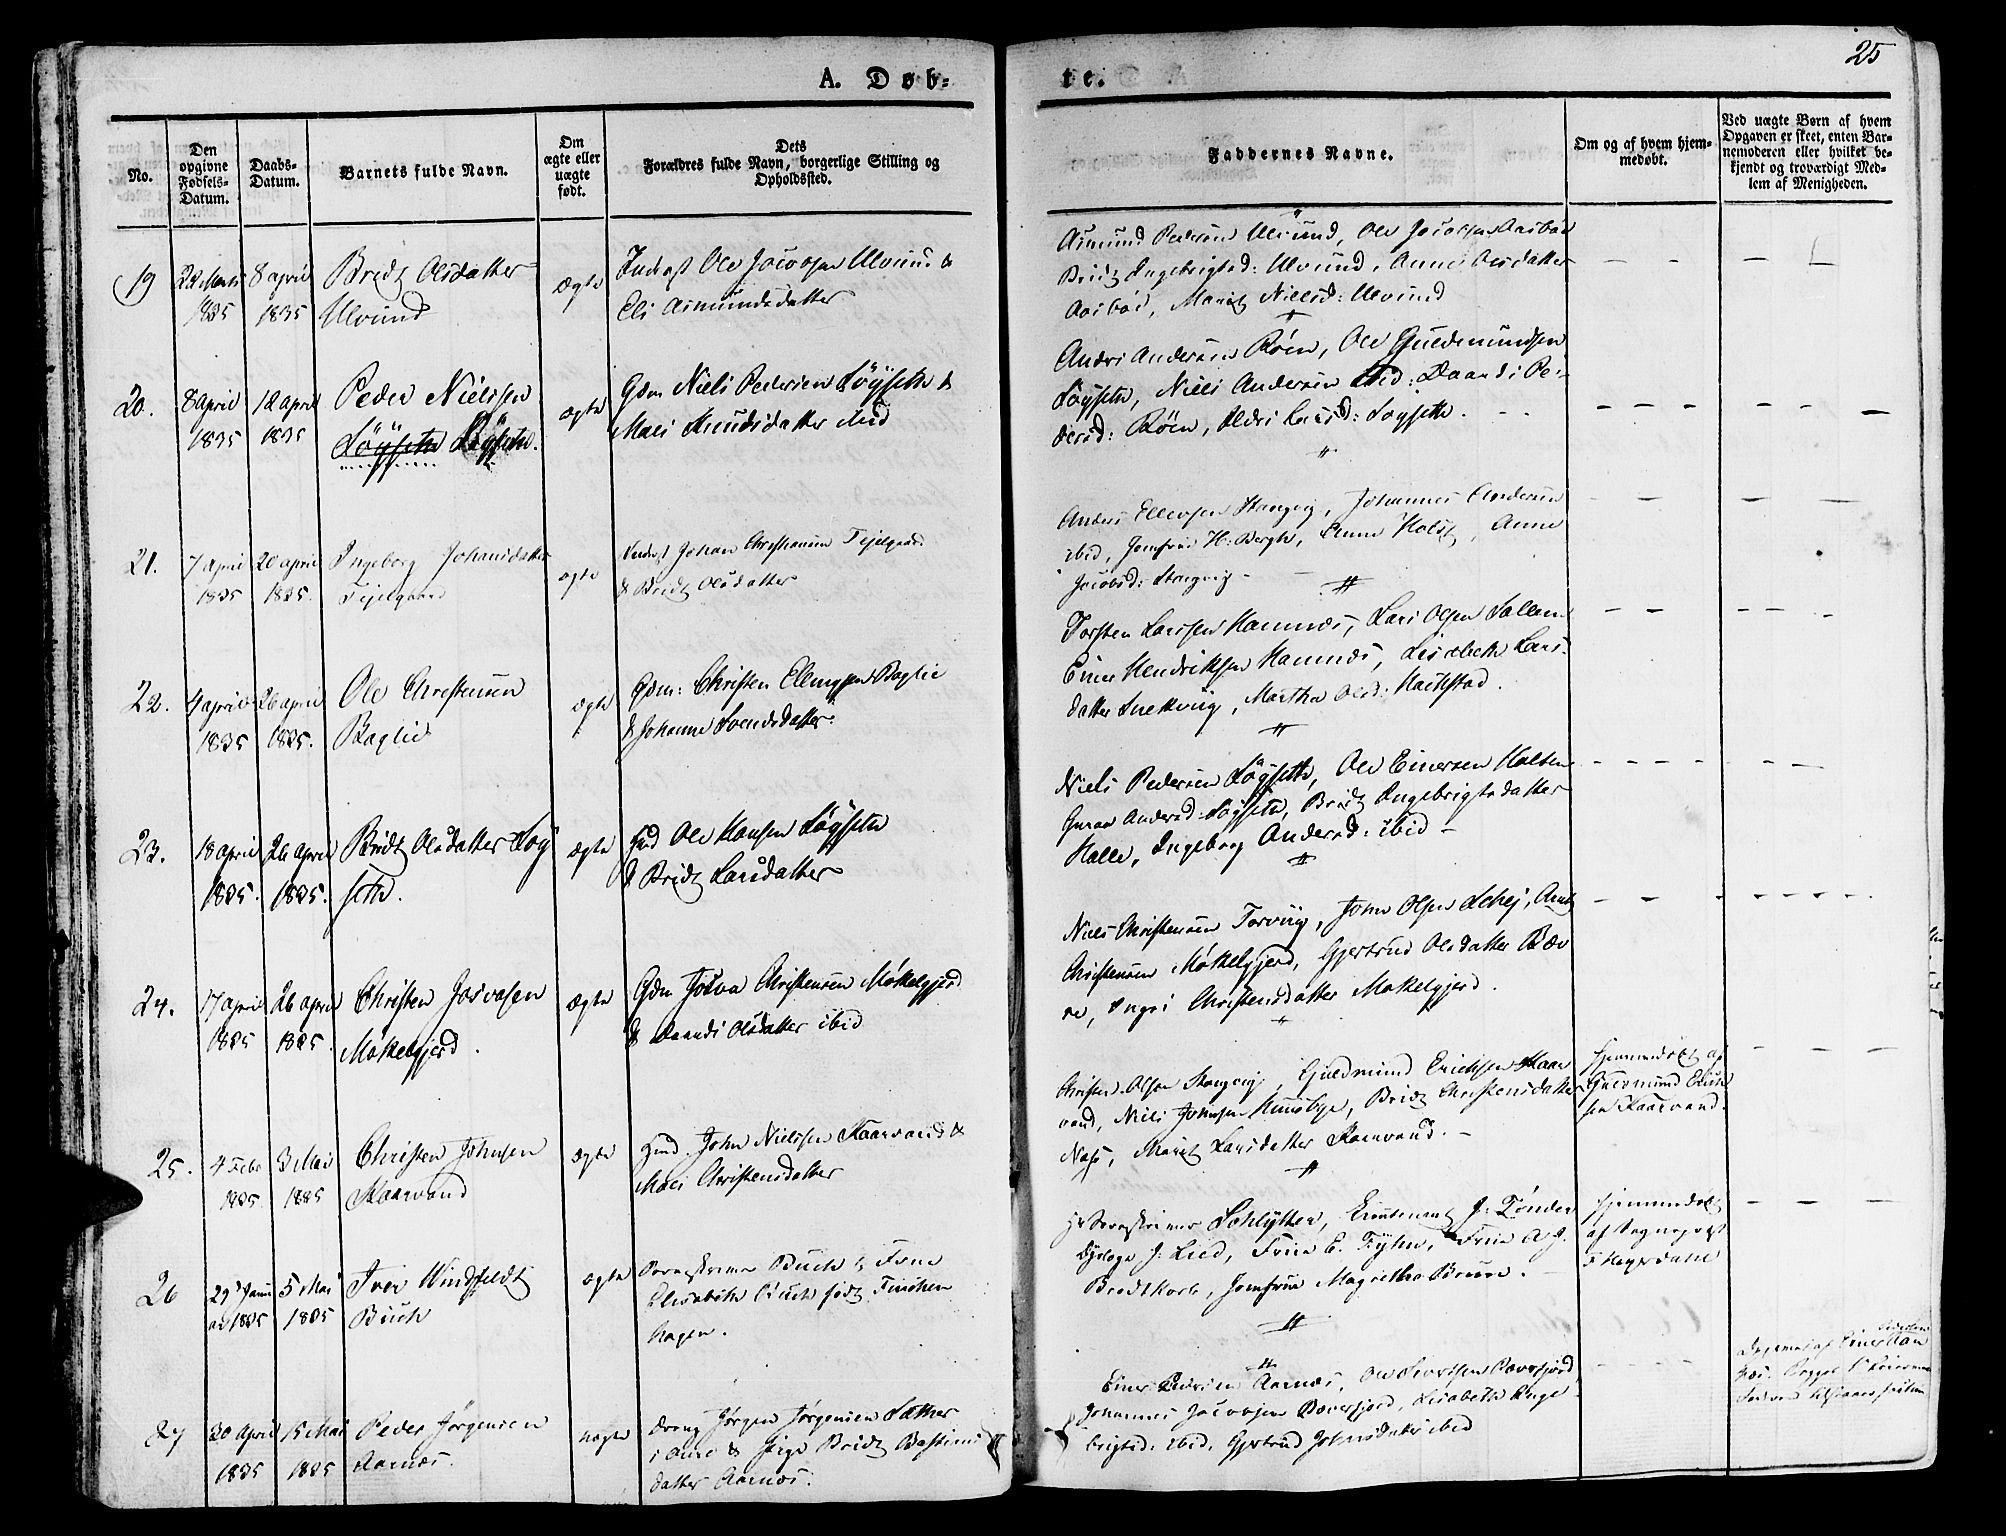 25
A. Døb=
te.
No.
Den opgivne Fødsels-Datum.
Daabs-Datum.
Barnets fulde Navn.
Om ægte eller uægte født.
Dets Forældres fulde Navn, borgerlige Stilling og Opholdssted.
Faddernes Navne.
Om og af hvem hjemmedøbt.
Ved uægte Børn af hvem Opgaven er skeet, enten Barnemoderen eller hvilket bekjendt og troværdigt Medlem af Menigheden.
19
22 Marts 1835
8 april 1835
Bridt Olsdatter
Ulvund
ægte
Indrst Ole Jacobsen Ulvund &
Eli Asmundsdatter
Asmund Pedersen Ulvund, Ole Jacobsen Aasbøe
Bridt Ingebrigtsd: Ulvund, Anne Olsdatter
Aasbøe, Marit Nielsd: Ulvund
20.
8 april 1835
12 april 1835
Peder Nielssen
Løgseth Løgseth.
ægte
Gdm Niels Pedersen Løgseth &
Mari Knudsdatter ibid
Andri Andersen Röen, Ole Guldmundsen
Løgseth, Niels Andersen ibid: Daardi Pe-
dersd: Röen, Larsd: Løgseth.
21.
7 april 1835
20 april 1835.
Ingeborg Johansdatter
Fjelgaard
ægte
Johan Christiansen Fjelgaard
& Bridt Olsdatter
Anders Ellevsen Stangvig, Johannes Andersen
ibid, Jomfrue H: Bergh, Anne Holst, Anne
Jacobsd: Stangvig
22.
4 april 1835
26 april 1835.
Ole Christensen
Baglie
ægte
Gdm: Christen Ellingsen Baglie
& Johanne Svendsdatter.
Torsten Larssen Hamnes, Lars Olsen
Einer Hendriksen Hamnes, Lisebeth Lars-
datter, Martha Olsd:
23.
18 april 1835.
26 april 1835.
Bridt Olsdatter Løg
seth.
ægte
Ole Hansen Løgseth
& Bridt Larsdatter
Niels Pedersen Løgseth, Ole Einersen Holten
Guraa Andersd: Løgseth, Bridt Ingebrigtsdatter
Halle, Ingeborg Andersd: ibid
24.
17 april 1835
26 april 1835.
Christen Josvasen
Møkelgjerd.
ægte
Gdm Josva Christensen Møkelgjerd
& Olsdatter ibid
Niels Christensen Torvig, John Olsen Schej,
Christensen Møkelgjerd, Gjertrud Olsdatter Bæv
re, Ingri Christensdatter Møkelgjerd.
25.
4 Febr 1835.
3 Mai 1835
Christen Johnsen
Kaarvand
ægte
John Nielssen Kaarvand &
Mari Christensdatter
Christen Olsen Stangvig, Guldmund Erichsen Kaar
vand, Niels Johnsen Huusbye, Bridt Christensdatter
Næss, Marit Larsdatter Kaarvand.
Hjemmedøbt af
Guldmund Erich
sen Kaarvand.
26
29 Janu ar 1835
5 Mai 1835
Iver Windfeldt
Buch
ægte
Sorenskriver Buch & Frue
Elisabeth Buch født Finckenhagen.
Sorenskriver Schlytter, Lieutenant J: Tönder
J: Lied, Frue E. Tyhn, Frue A J.
Bredtkorb, Jomfrue Magrethe Bruun.
Hjemmedøbt
af Sognepræst
27
30 April 1835
15 Mai 1835
Peder Jørgensen
Aarnæs.
uægte
Dreng Jørgen Jørgensen Sæther
i Aure & Pige Bridt Bastians
datter Aarnæs.
Einer Pedersen Aarnæs, Ole Bæverfjord
Johannes Jacobsen Bæverfjord, Lisabeth Inge
brigtsd: ibid, Gjertrud Johnsdatter ibid